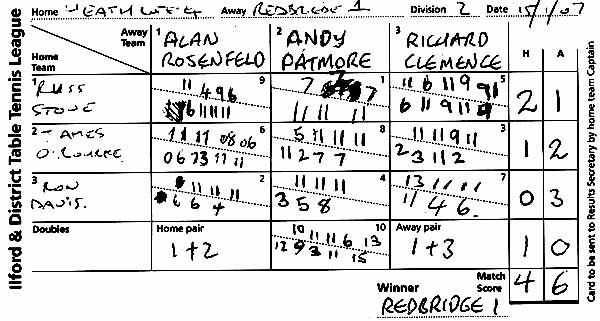 Home HEATHCOTE 4 Away REDBRIDGE 1 Division 2 Date 15/1/07
Ilford & District Table Tennis League
Away Team 1 ALAN ROSENFELD 2 ANDY PATMORE 3 RICHARD CLEMENCE H A
Home Team
1 RUSS STONE 9 1 5 2 1
11 4 9 6
6 11 11 11
11 11 11
11 6 11 9 9
6 11 9 11
2 JAMES O'ROURKE 6 8 3 1 2
11 11 08 06
06 73 11 11
5 11 11 11
11 2 7 7
11 11 9 11
2 3 11 2
3 RON DAVIS. 2 4 7 0 3
11 11 11
6 6 4
11 11 11
3 5 8
13 11 11 11
11 4 6.
Doubles Home pair 1+2 10 Away pair 1+3 1 0
10 11 11 6 13
12 9 3 11 15
Winner REDBRIDGE 1 Match Score 4 6
Card to be sent to Results Secretary by home team Captain